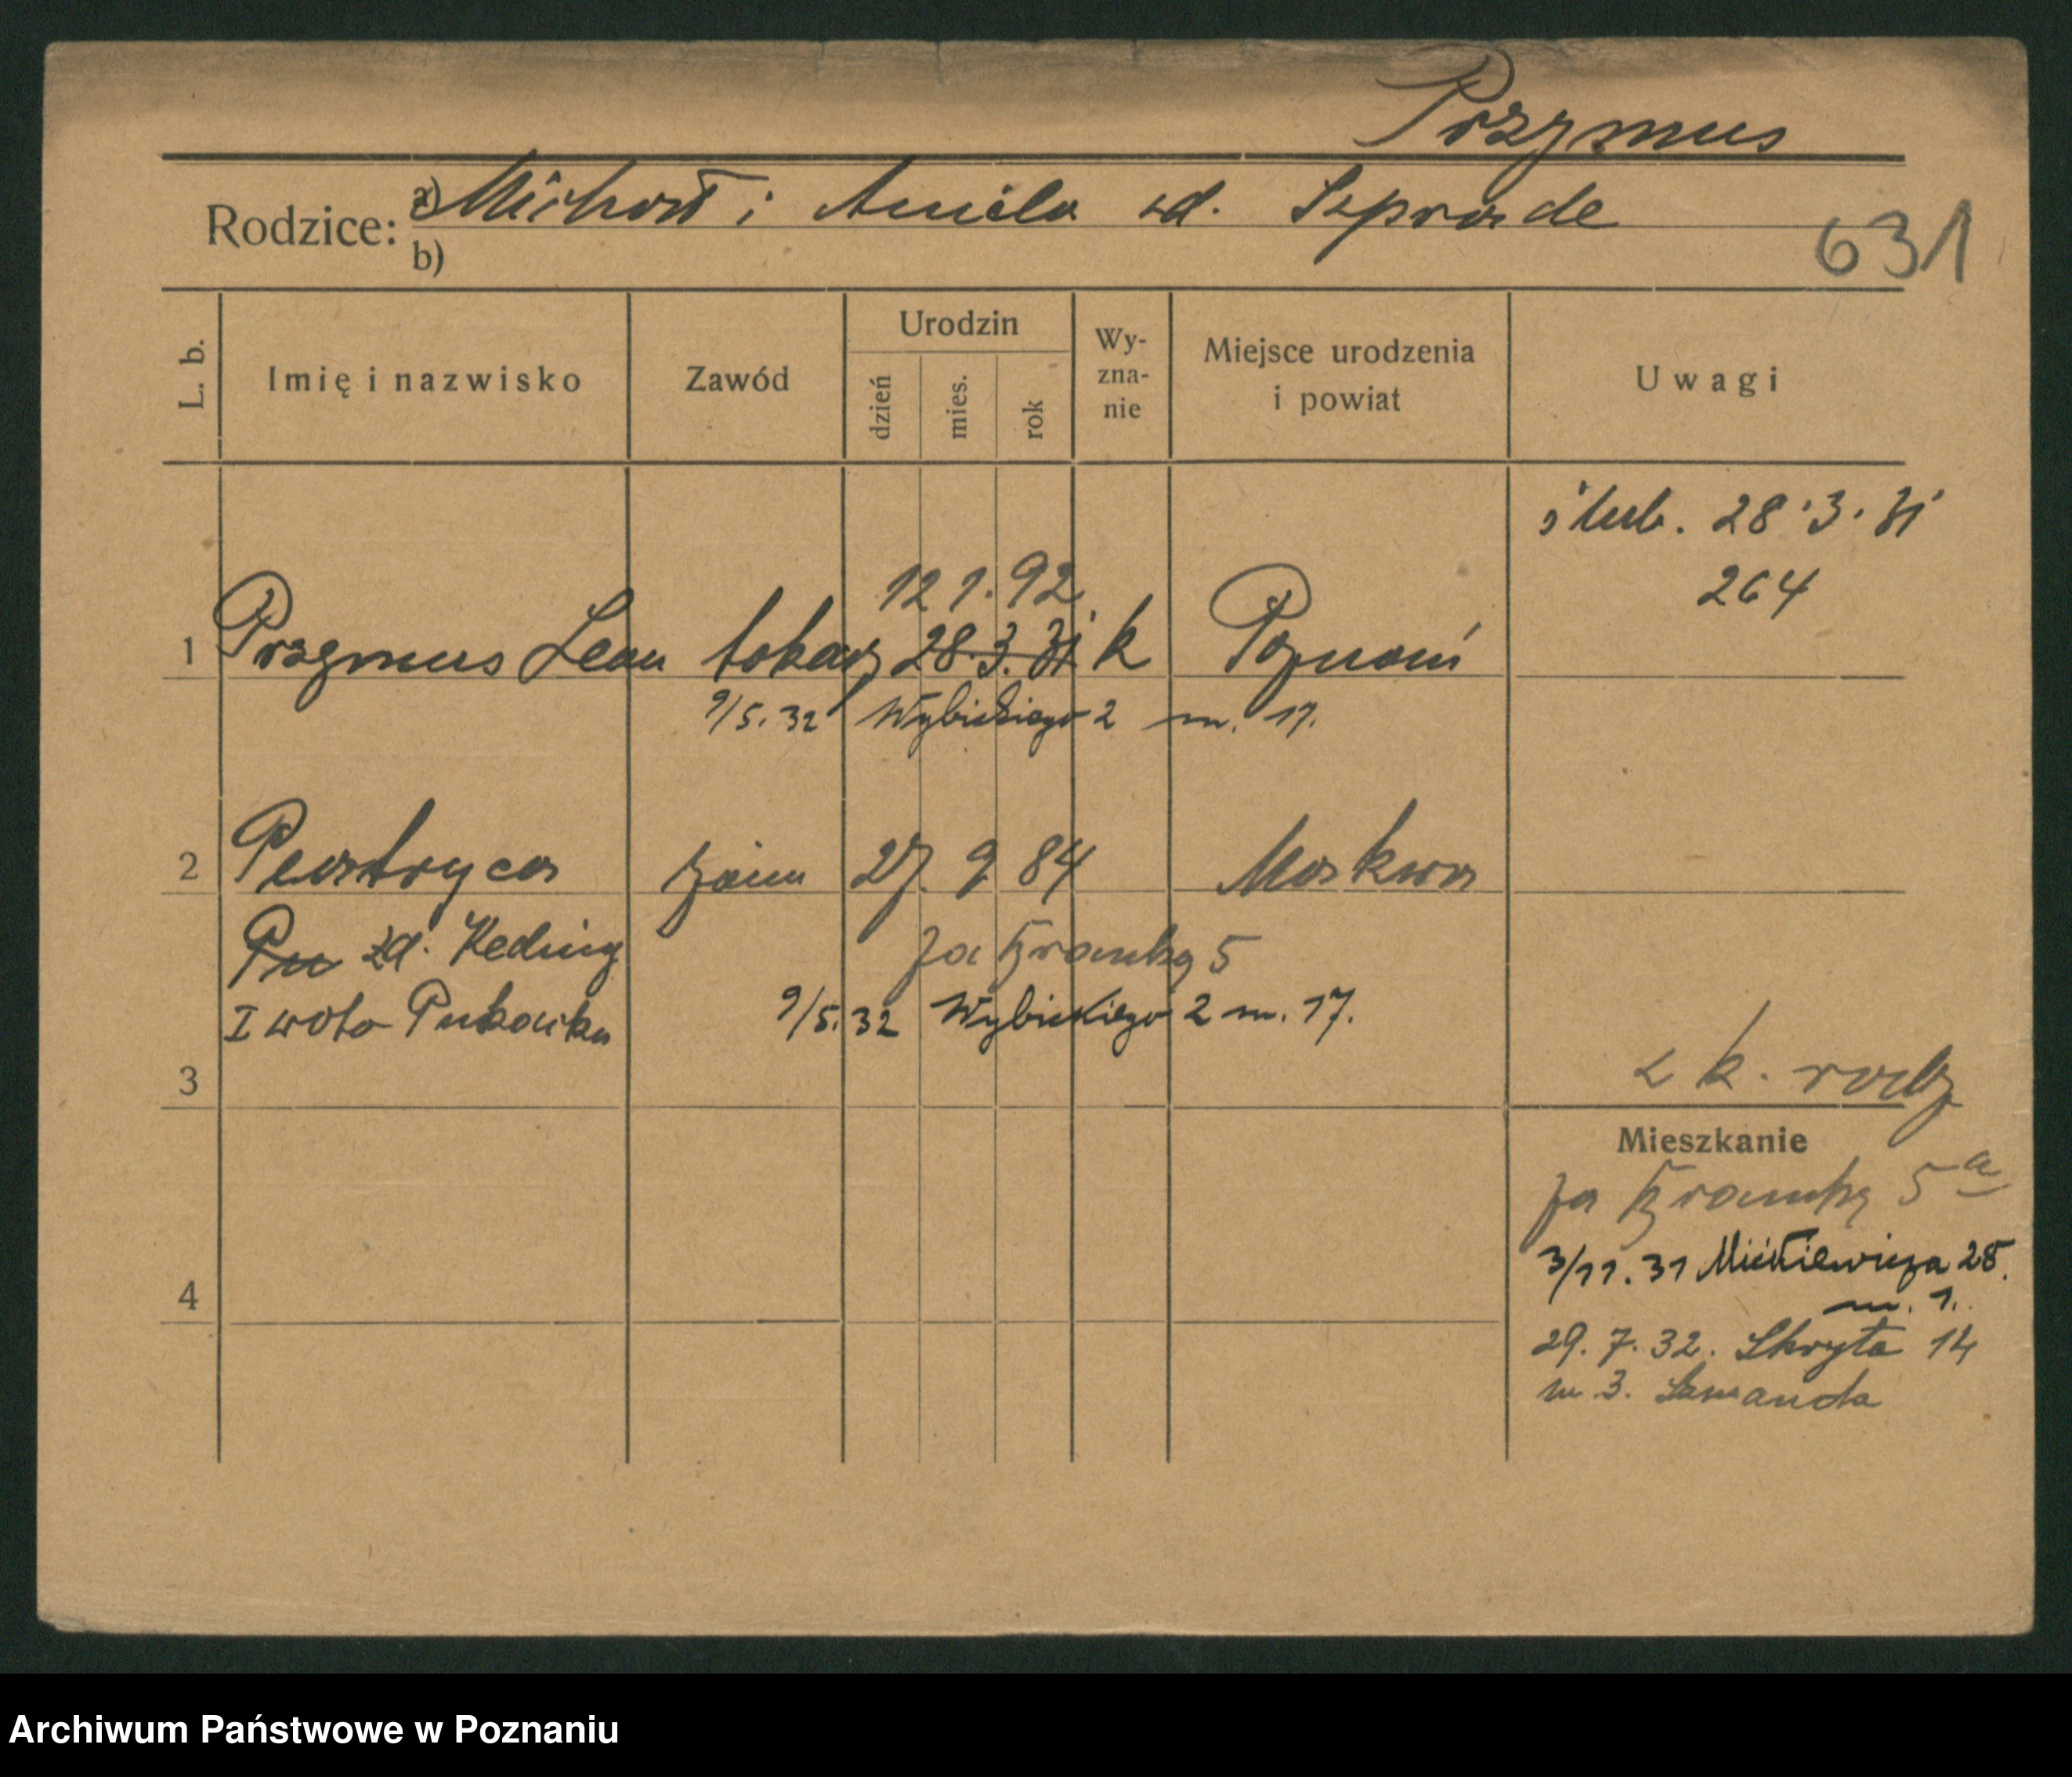 Przymus
Rodzice: a) Michał i Aniela zd. Szprade
b)
631
L. b. Imię i nazwisko Zawód Urodzin dzień mies. rok Wy-zna-nie Miejsce urodzenia i powiat Uwagi
ślub. 28.3.31
264
12 1. 92
1 Przymus Leon tokarz 28.3.31 k Poznań
9/5. 32 Wybickiego 2 m. 17.
2 Peastryca żona 27. 9 84 Moskwa
zd. Keding Za Bramką 5
I woto 9/5. 32 Wybickiego 2 m. 17.
3 z k. rodz
Mieszkanie
Za Bramką 5 a
3/11. 31 Mickiewicza 28.
m. 1.
4
29. 7. 32. Skryta 14
m. 3. Szmanda
Archiwum Państwowe w Poznaniu